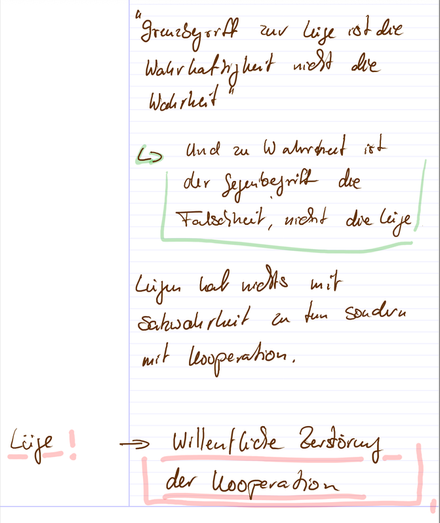 "Grenzbegriff zur Lüge ist die
Wahrhaftigkeit nicht die
Wahrheit"
↳ Und zu Wahrheit ist
der Gegenbegriff die
Falschheit, nicht die Lüge
Lügen hat nichts mit
Satzwahrheit zu tun sondern
mit Kooperation.
Lüge! → Willentliche Zerstörung
der Kooperation